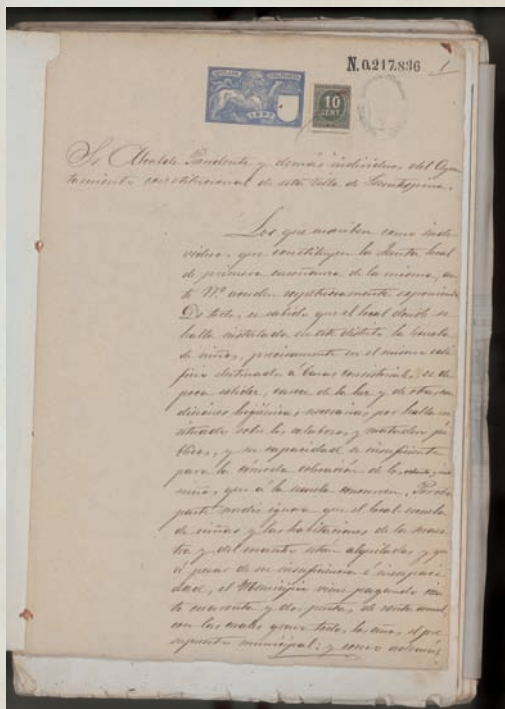 N.0,217,836 1
1897
10
CENT.
Sr. Alcalde Presidente y demás individuos del Ayun
tamiento constitucional de esta villa de
Los que suscriben como indi
viduos que constituyen la Junta local
de primera enseñanza de la misma, an
te V.S. acuden respetuosamente exponiendo:
De todos es sabido que el local donde se
halla instalada en este distrito la Escuela
de niños, precisamente en el mismo edi
ficio destinado á Casas consistoriales, es de
poca solidez, carece de la luz y de otras con
diciones higiénicas necesarias, por hallarse
situado sobre los calabozos y matadero pú
blicos, y su capacidad es insuficiente
para la cómoda colocación de los
niños que á la escuela concurren. Por otra
parte nadie ignora que el local escuela
de niñas y las habitaciones de la maes
tra y del maestro están alquiladas y que
á pesar de su insuficiencia é incapaci
dad, el Municipio viene pagando cien
to cuarenta y dos pesetas de renta anual
con las cuales grava todos los años el pre
supuesto municipal: y como además